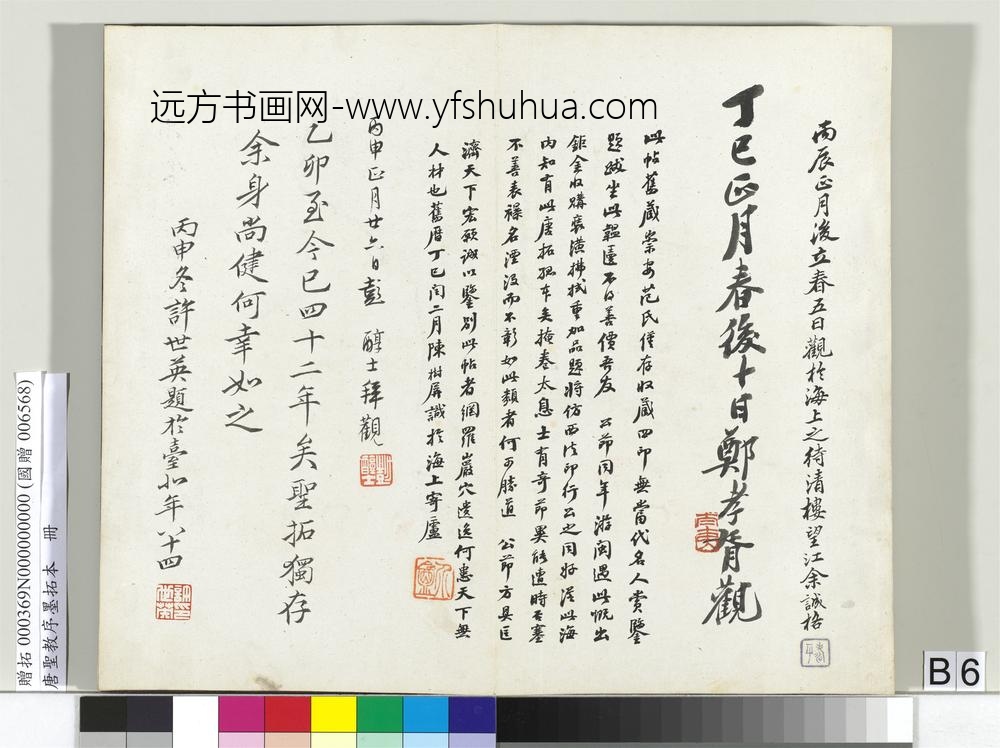 远方书画网-www.yfshuhua.com
丙辰正月後立春五日觀於海上之待清樓望江余誠格
丁巳正月春後十日鄭孝胥觀
此帖舊藏崇安范氏僅存收藏四印無當代名人賞鑒
題跋坐此韞匵不得善價吾友 公節同年游閩遇此慨出
鉅金收購裝潢拂拭重加品題將仿西法印行公之同好從此海
內知有此唐拓孤本矣掩卷太息士有奇節異能遭時否塞
不善表襮名湮沒而不彰如此類者何可勝道 公節方具匡
濟天下宏願誠以鑒別此帖者網羅巖穴遺逸何患天下無
人材也舊曆丁巳閏二月陳樹屏識於海上寄廬
丙申正月廿六日彭醇士拜觀
乙卯至今已四十二年矣聖拓獨存
余身尚健何幸如之
丙申冬許世英題於臺北年八十四
贈拓 000369N000000000 (國贈 006568)
唐聖教序墨拓本 冊
B 6